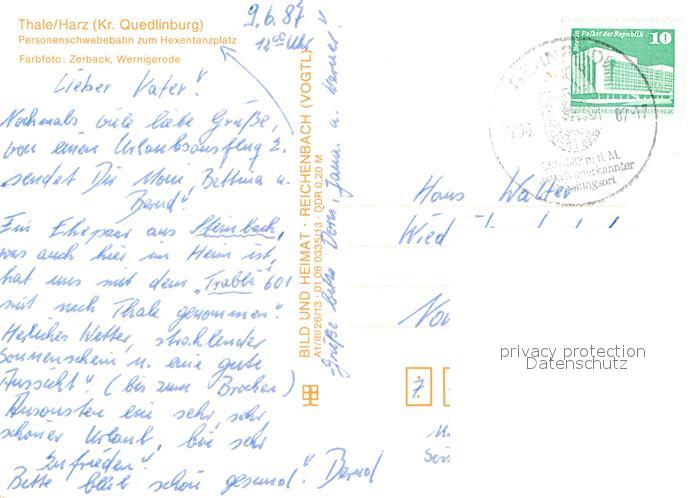 Thale/Harz (Kr. Quedlinburg)
Personenschwebebahn zum Hexentanzplatz
Farbfoto: Zerback, Wernigerode
9.6.87
12 00 Uhr
Lieber Vater!
Nochmals viele liebe Grüße,
von einem Urlaubsausflug 2.
sendet Dir Moni, Bettina u.
Bernd!
Ein Ehepaar aus Steinbach,
was auch hier im Heim ist,
hat uns mit dem "Trabi" 601
mit nach Thale genommen!
Herliches Wetter, strahlender
Sonnenschein u. eine gute
Aussicht! (bis zum Brocken)
Ansonsten ein sehr, sehr
schöner Urlaub, bin sehr
zufrieden!
Bitte bleib schön gesund! Bernd
Grüße bitte Doris, Jana u. Werner!
BILD UND HEIMAT · REICHENBACH (VOGTL)
A1/III/26/13 · 01 08 0335/13 · DDR 0,20 M
Berlin Palast der Republik 10
87-17
Hans Walter
7
privacy protection
Datenschutz